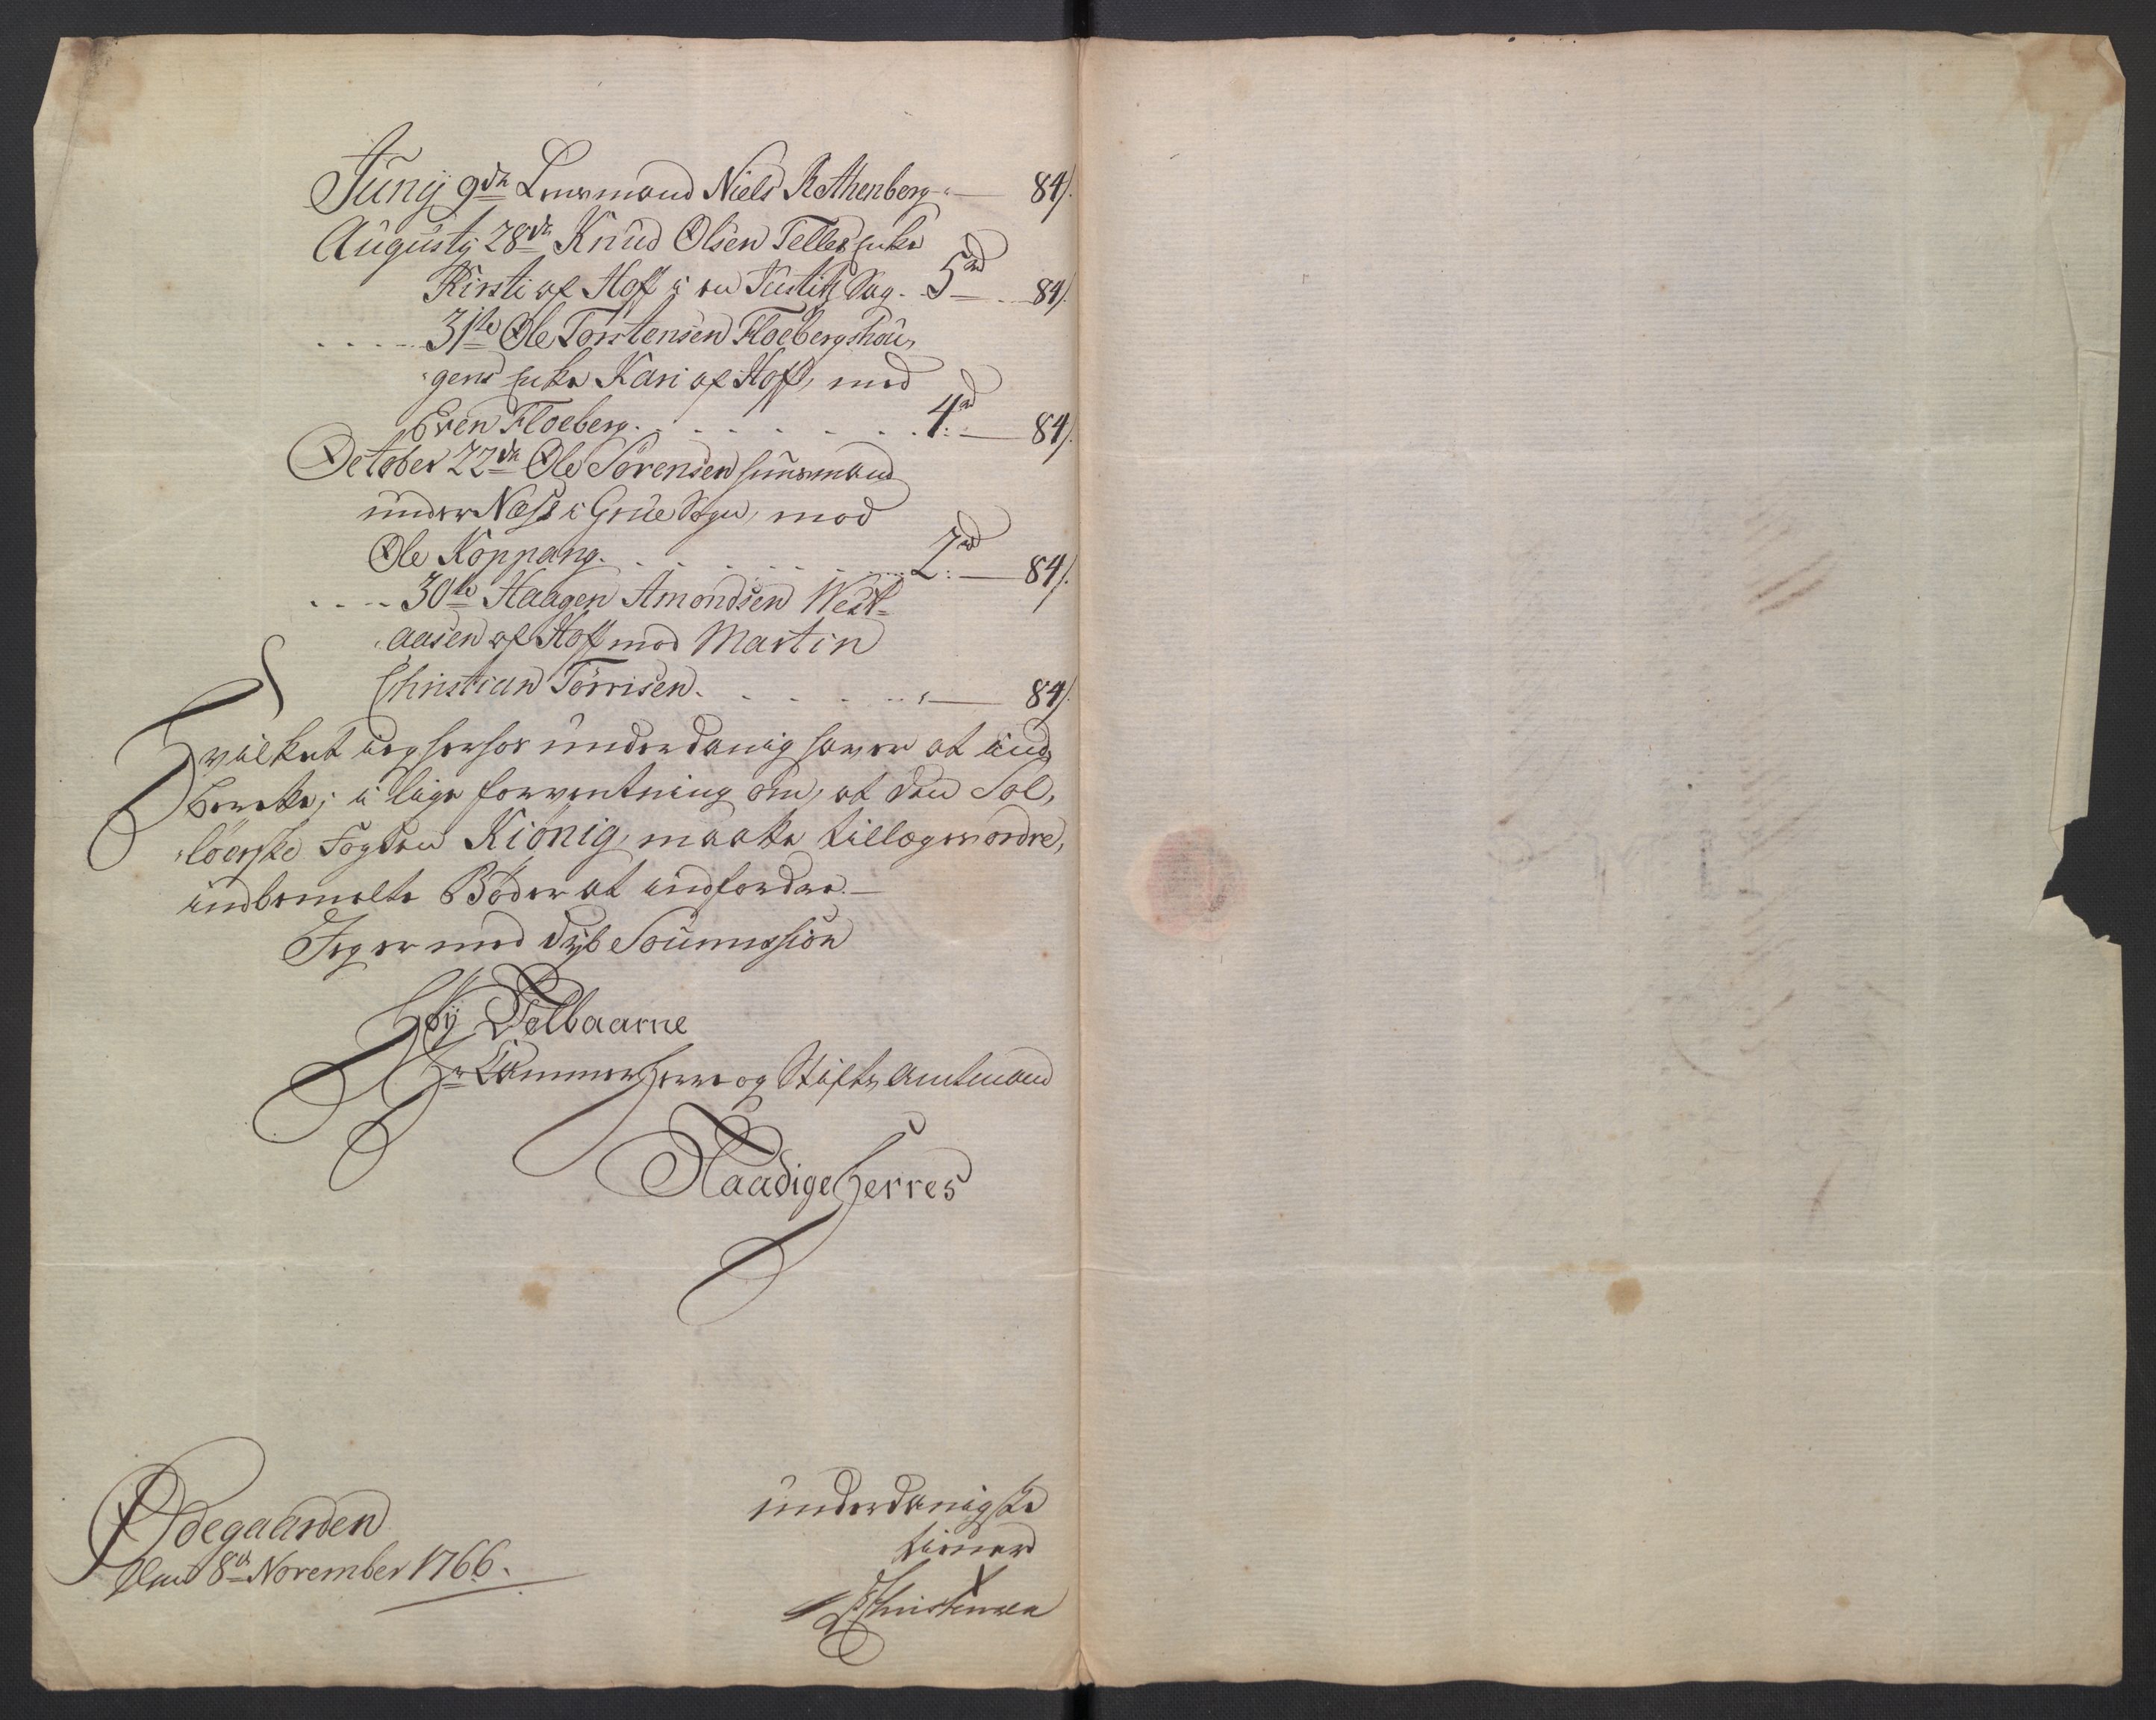 Junij 9de Lensmand Niels Rothenberg „ — 84 s.
Augustij 28de Knud Olsen Teller enke
Kirsti af Hoff i en Justitz Sag. 5 rd — 84 s.
31te Ole Torstensen Floebergshou,
gens enke Kari af Hoff, mod
Even Floeberg. 4 rd: — 84 s.
October 22de Ole Sørensen huusmand
under Næss i Grue Sogn, mod
Ole Koppang. 2 rd: — 84 s.
30te Haagen Amondsen West-
aasen af Hoff mod Martin
Christian Tørrisen. „ — 84 s.
Hvilket ieg herfor underdanig haver at ind,
berette; i lige forventning om, at den Sol,
løerske Fogden Kiønig, maatte tillægges ordre,
indbemelte Bøder at indfordre. —
Jeg er med dyb Soumission
Høy Velbaarne
Hr Cammerherre og Stifts Amtmand
Naadige Herres
Ødegaarden
den 8de November 1766.
underdanigste
tiener
Christensen